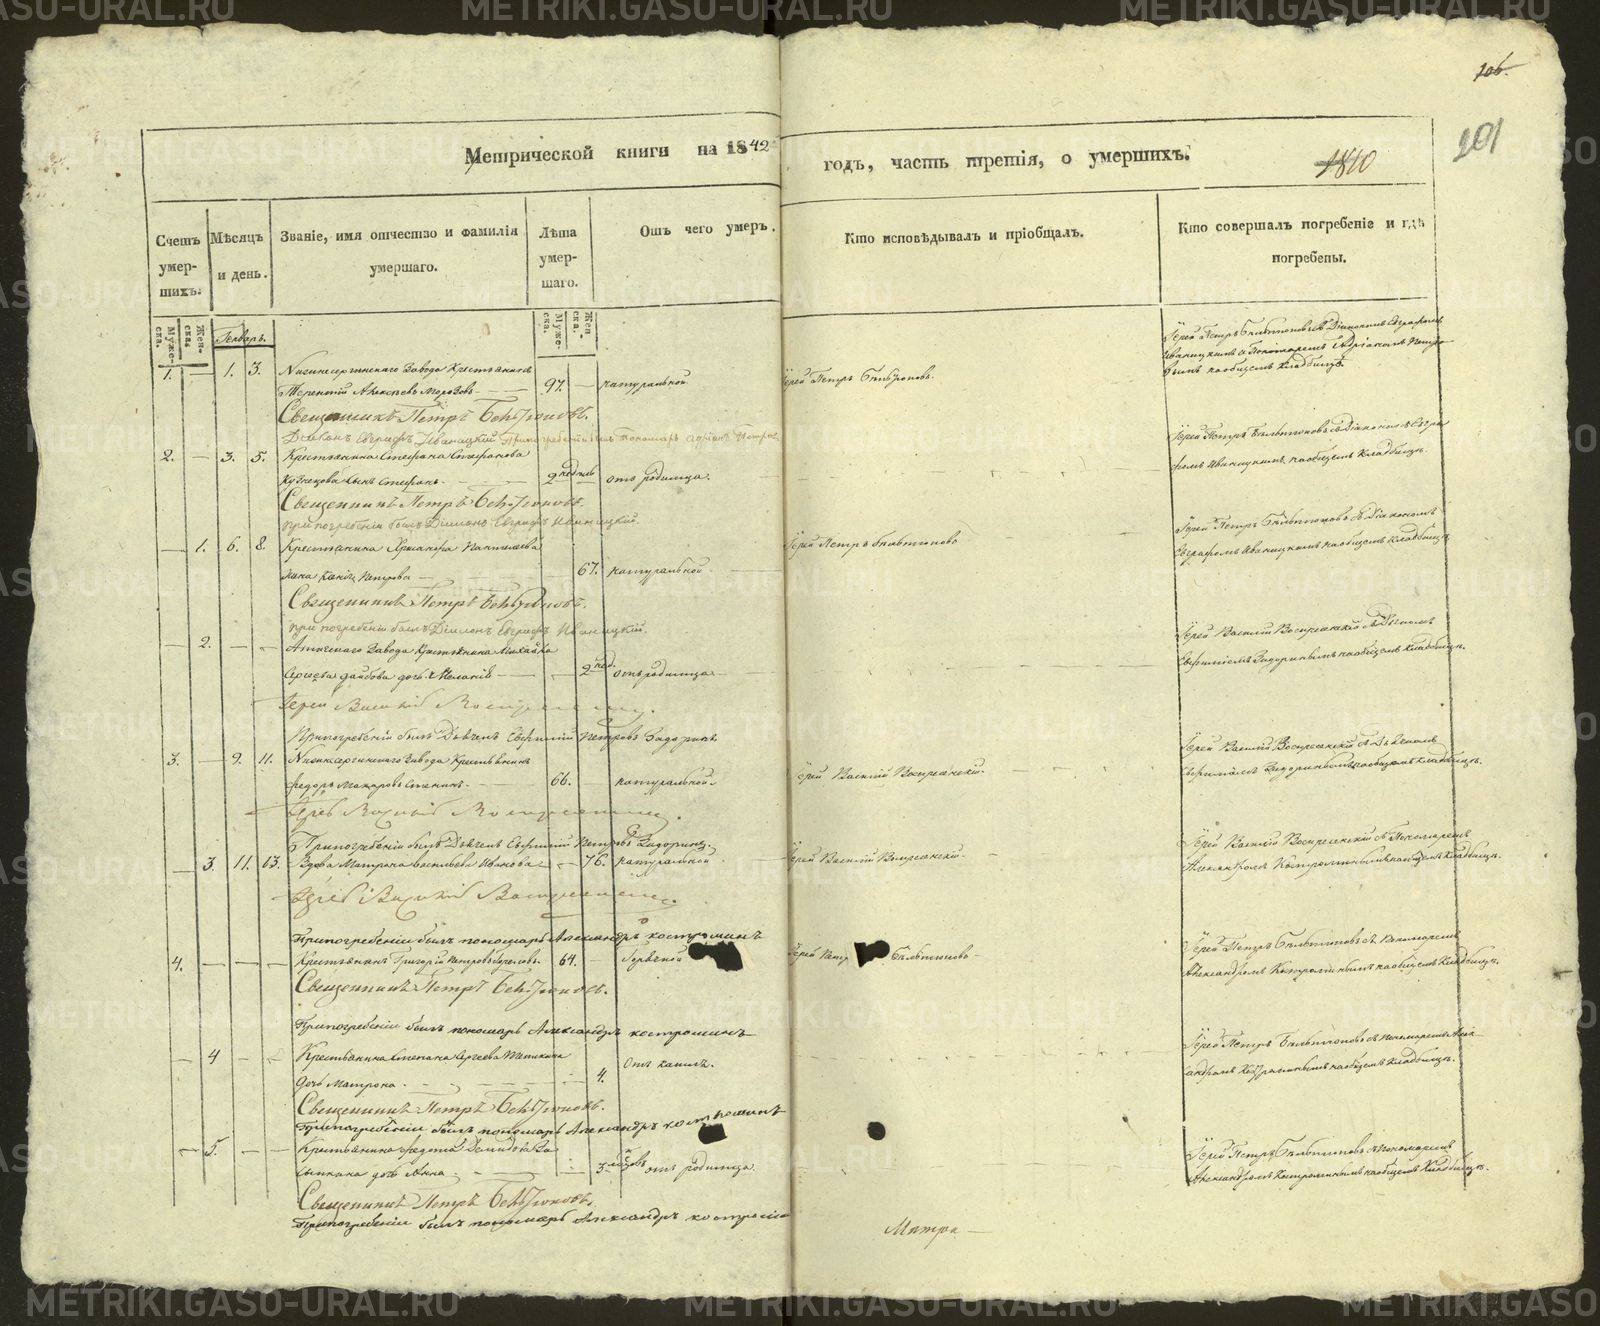 106.
201
Метрической книги на 1842
годъ, часть третія, о умершихъ.
1810
Счетъ умер-шихъ.
Мѣсяцъ и день.
Званіе, имя отчество и фамилія умершаго.
Лѣта умер-шаго.
Отъ чего умеръ.
Кто исповѣдывалъ и пріобщалъ.
Кто совершалъ погребеніе и гдѣ погребены.
Муже-ска.
Жен-ска.
Генварь.
Муже-ска.
Жен-ска.
1. — 1. 3. Нижнесергинскаго Завода Крестьянинъ
Терентій Алексѣевъ Морозовъ 97. — натуральной
Іерей Петръ Бѣлтюковъ.
Іерей Петръ Бѣлтюковъ съ Діакономъ Евграфомъ
Иваницкимъ и Пономаремъ Адріаномъ
на общемъ кладбищѣ.
Священникъ Петръ Бѣлтюковъ.
Діаконъ Евграфъ Иваницкій При погребеніи былъ Пономарь Адріанъ
2. — 3. 5. Крестьянина Стефана Стефанова
Кузнецова сынъ Стефанъ. 2 недѣль отъ родимца.
Іерей Петръ Бѣлтюковъ съ Діакономъ Евгра
фомъ Иваницкимъ на общемъ Кладбищѣ.
Священникъ Петръ Бѣлтюковъ.
при погребеніи былъ Діаконъ Евграфъ Иваницкій.
— 1. 6. 8. Крестьянина
Петрова 67. натуральной
Іерей Петръ Бѣлтюковъ
Іерей Петръ Бѣлтюковъ съ Діакономъ
Евграфомъ Иваницкимъ на общемъ Кладбищѣ
Священникъ Петръ Бѣлтюковъ.
при погребеніи былъ Діаконъ Евграфъ Иваницкій.
— 2. — — Атигскаго Завода Крестьянина Михайла
Сергѣева дочь Меланія 2 нед. отъ родимца
Іерей Василій Воскресенскій съ Дьячкомъ
Евфиміемъ Задоринымъ на общемъ кладбищѣ.
Іерей Василій Воскресенскій.
При погребеніи былъ Дьячекъ Евфимій Петровъ Задоринъ
3. — 9. 11. Нижнесергинскаго Завода Крестьянинъ
Федоръ Макаровъ 66. натуральной.
Іерей Василій Воскресенскій.
Іерей Василій Воскресенскій съ Дьячкомъ
Евфиміемъ Задоринымъ на общемъ кладбищѣ.
Іерей Василій Воскресенскій.
При погребеніи былъ Дьячекъ Евфимій Петровъ Задоринъ
— 3. 11. 13. Вдова Матрона Васильева Иванова 76. натуральной
Іерей Василій Воскресенскій.
Іерей Василій Воскресенскій съ Пономаремъ
Александромъ Костроминымъ на общемъ кладбищѣ.
Іерей Василій Воскресенскій.
При погребеніи былъ пономарь Александръ костроминъ
4. — — — Крестьянинъ Григорій Петровъ 64. — Горячкой
Іерей Петр Бѣлтюковъ
Іерей Петръ Бѣлтюковъ съ Пономаремъ
Александромъ Костроминымъ на общемъ кладбищѣ.
Священникъ Петръ Бѣлтюковъ.
При погребеніи былъ пономарь Александръ костроминъ
— 4 — — Крестьянина Степана Сергѣева
дочь Матрона. 4. Отъ кашля.
Іерей Петръ Бѣлтюковъ съ пономаремъ Алек
сандромъ Костроминымъ на общемъ кладбищѣ.
Священникъ Петръ Бѣлтюковъ.
При погребеніи былъ пономарь Александръ костроминъ
— 5. — — Крестьянина Федота Демидова
дочь Анна. 3. отъ родимца.
Іерей Петръ Бѣлтюковъ съ пономаремъ
Александромъ Костроминымъ на общемъ Кладбищѣ.
Священникъ Петръ Бѣлтюковъ.
При погребеніи былъ пономарь Александръ костромин
Матро—
METRIKI.GASO-URAL.RU